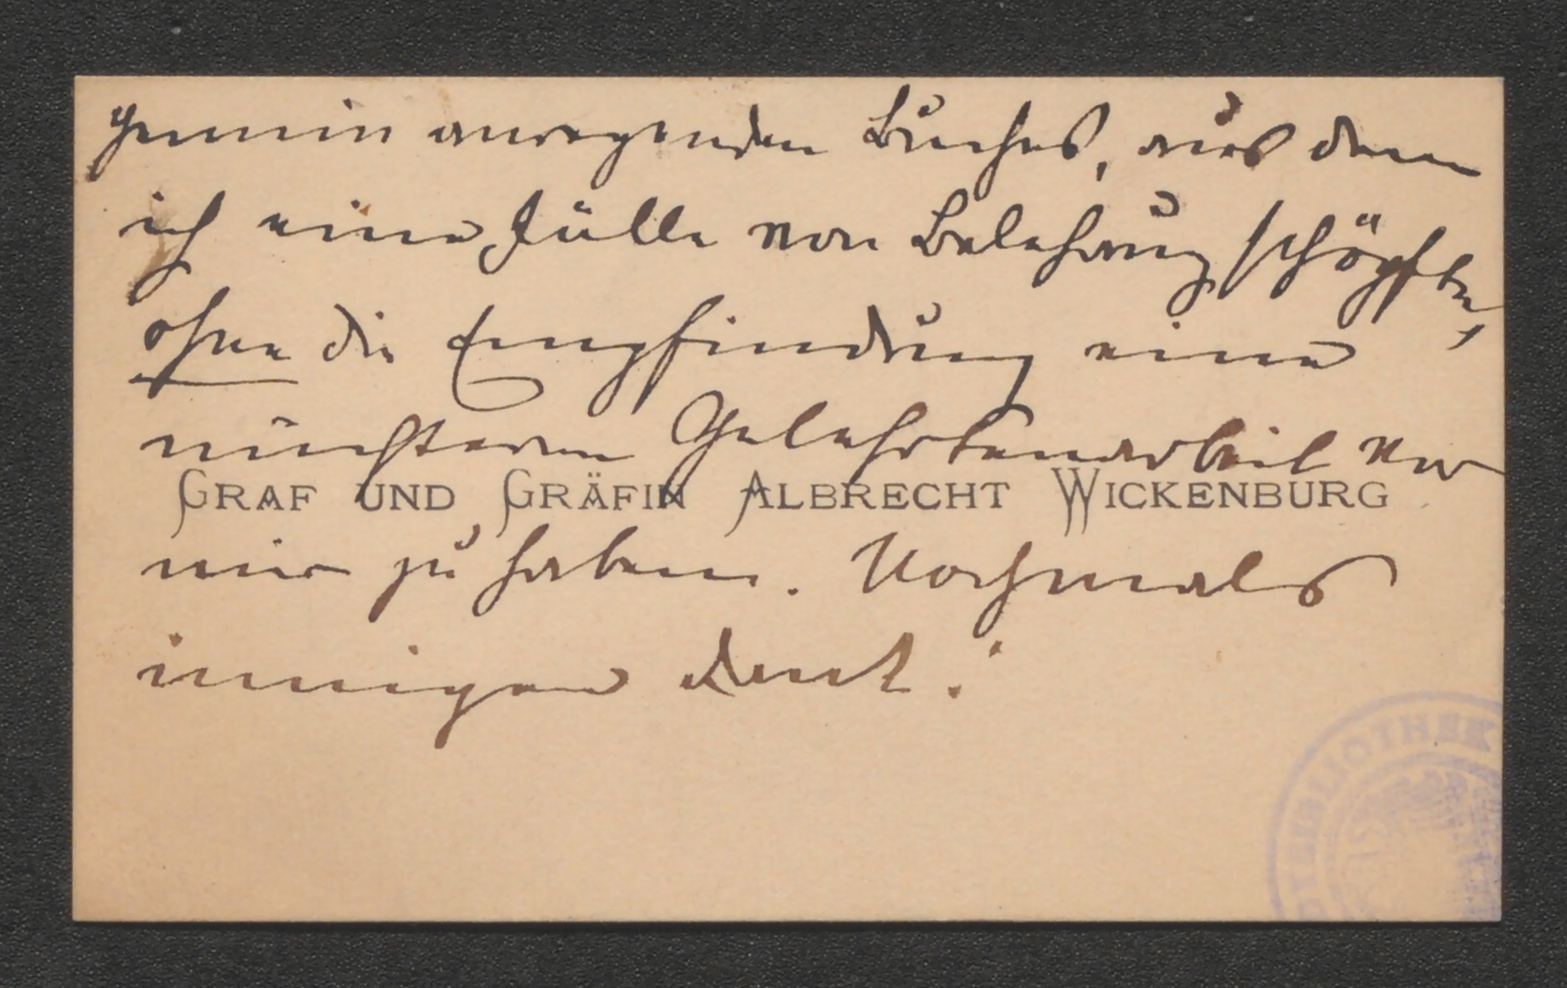 gemein anregenden Buches, aus dem
ich eine Fülle von Belehrung schöpfte,
ohne die Empfindung einer
nüchternen Gelehrtenarbeit vor
GRAF UND GRÄFIN ALBRECHT WICKENBURG
mir zu haben. Nochmals
innigen Dank!
DTBIBLIOTHEK